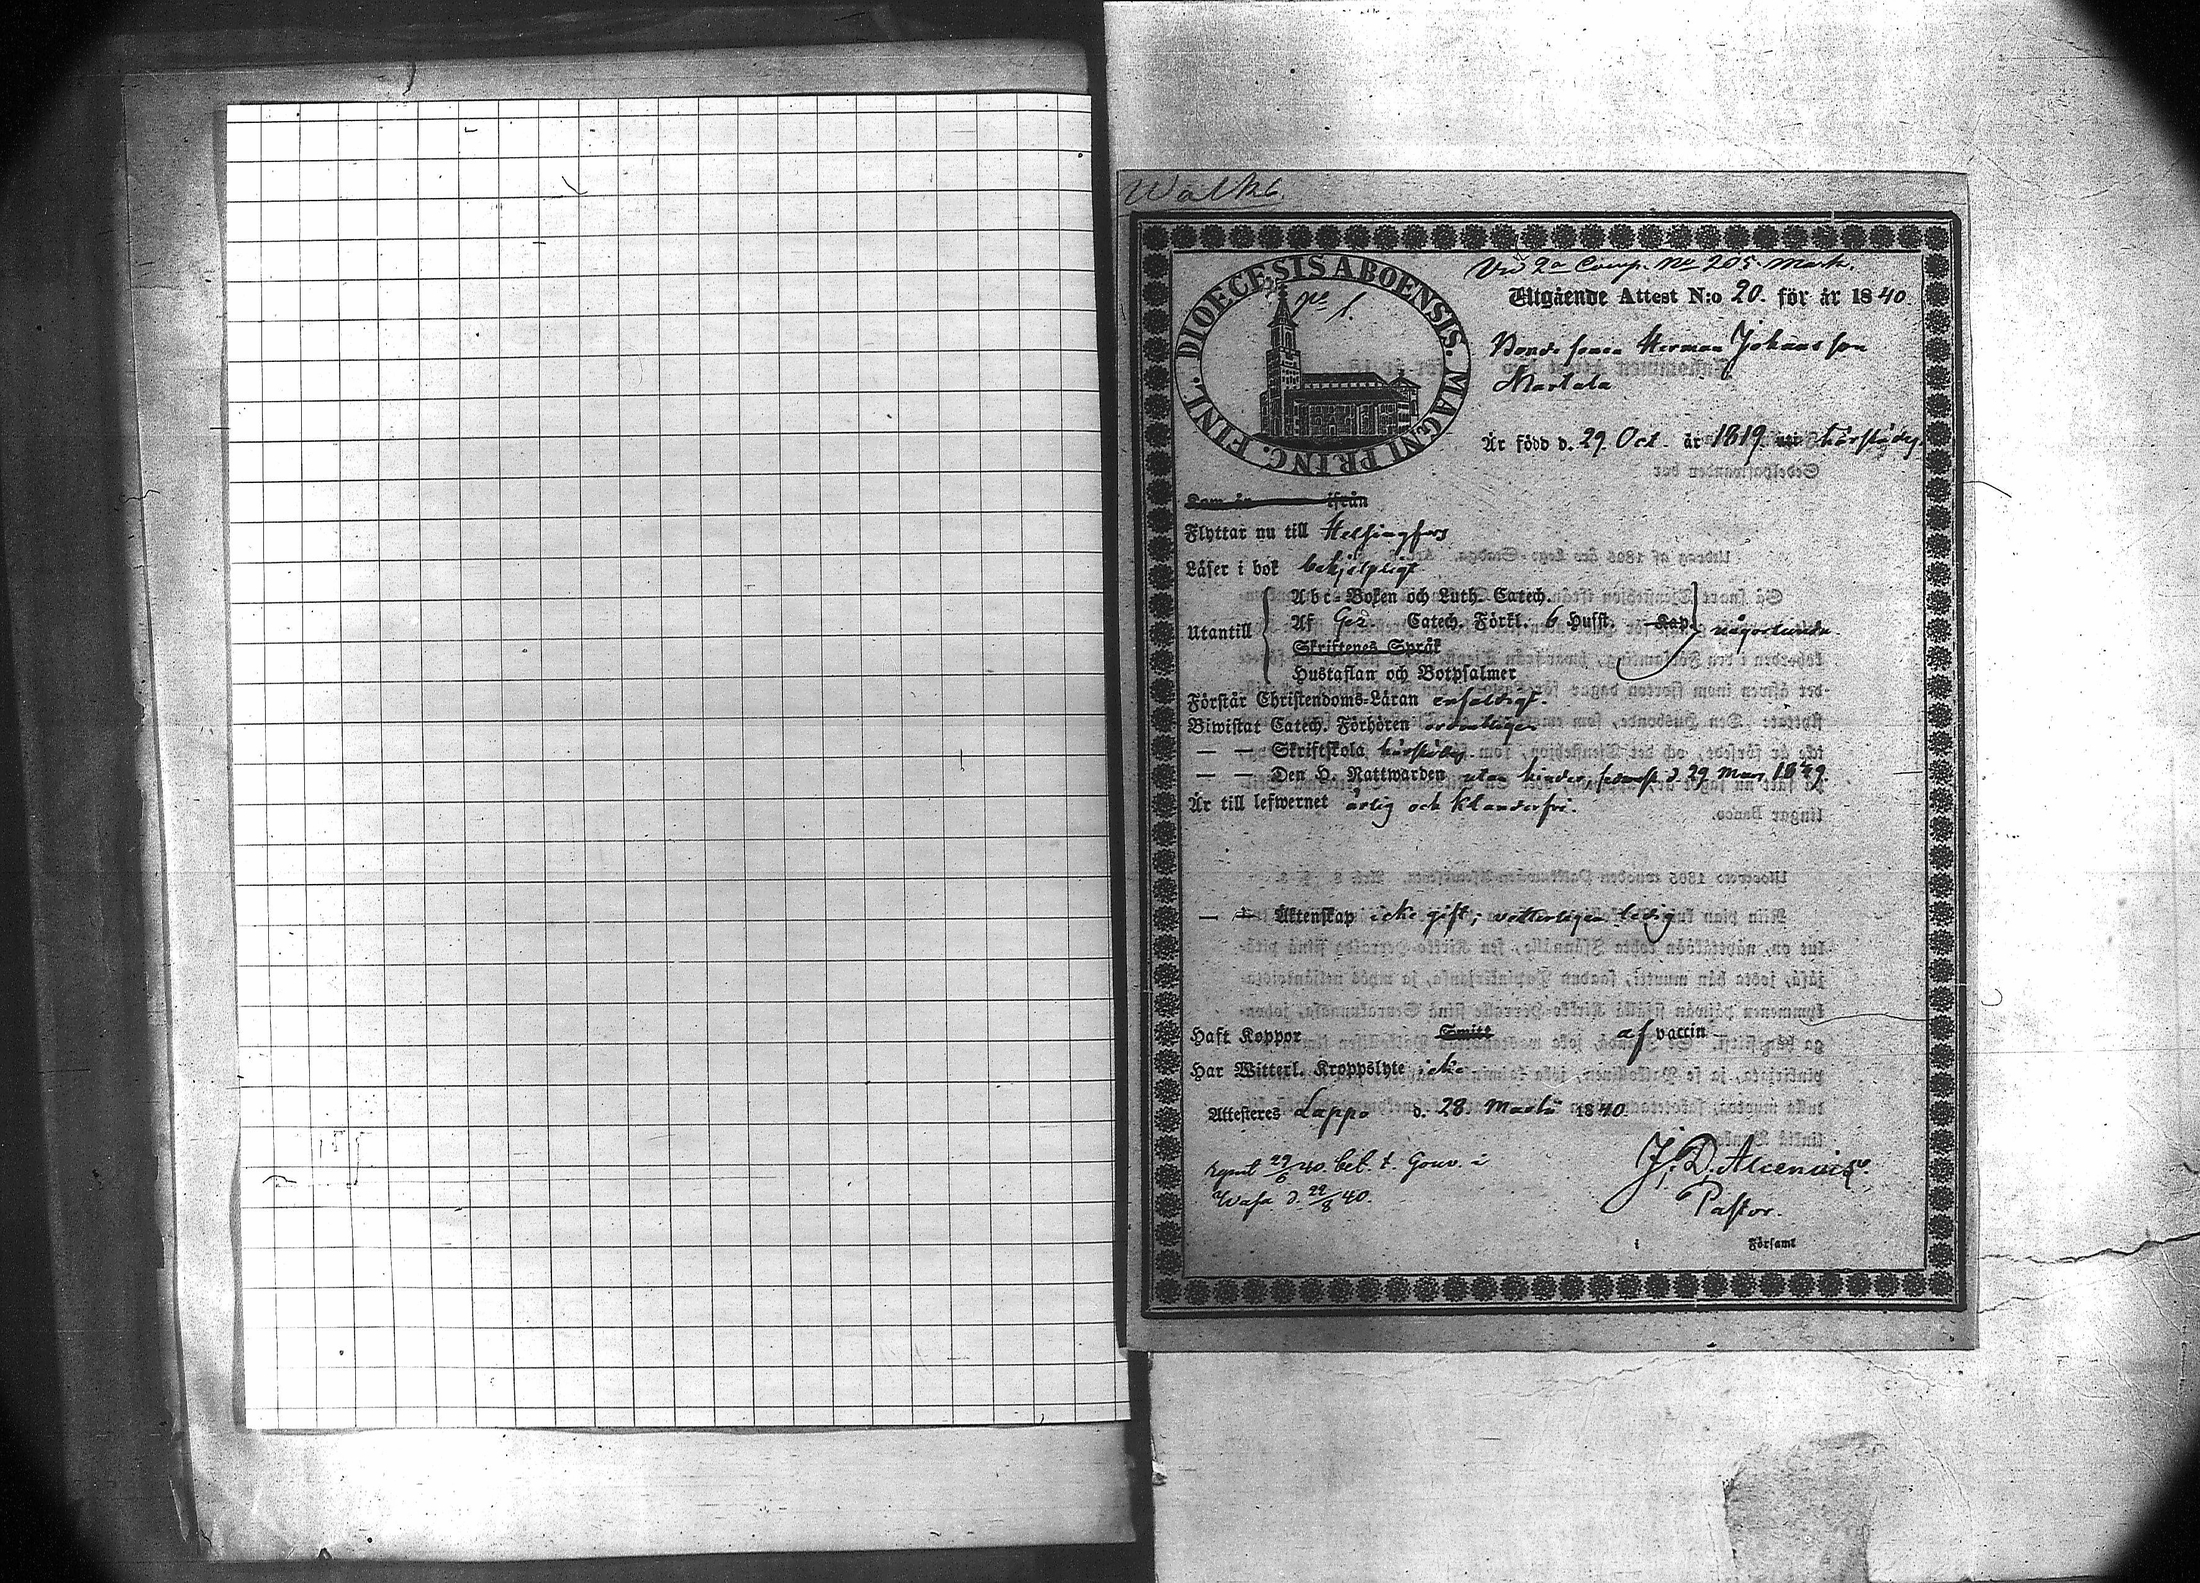 DIOECESIS ABOENSIS. MAGNI PRINC. FINL.
Utgående Attest N:o 20. för år 1840.
Bondesonen Herman Johansson
Martala
Är född d. 29 Oct. år 1819 härstädes
Kom år ifrån
Flyttar nu till Helsingfors
Läser i bok behjelpligt
Utantill
Abc-Boken och Luth. Catech.
Af Catech. Förkl. 6 Hufst. Kap. någorlunda.
Skriftenes Språk
Hustaflan och Botpsalmer
Förstår Christendoms-Läran enfaldigt.
Biwistat Catech. Förhören ordentligen
— — Skriftskola härstädes
— — Den H. Nattwarden utan hinder, d. 29 Mars
Är till lefwernet ärlig och klanderfri.
— — Äktenskap icke gift; vetterligen ledig
Haft Koppor Smitt af vaccin
Har Witterl. Kroppslyte icke
Attesteres Lappo d. 28 Martii 1840.
J. D. Alcenius.
Pastor.
22/6 40. bet. t. Gouv. i
Wasa d. 22/8 40.
i Församl